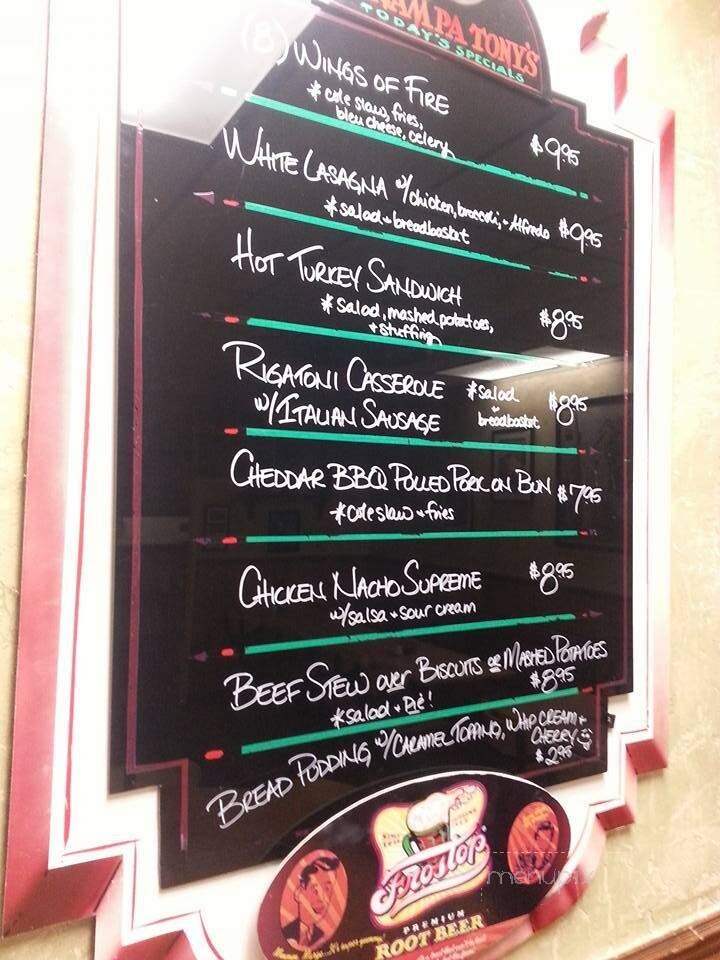 AMPA TONY'S
TODAY'S SPECIALS
(8) WINGS OF FIRE
* cole slaw, fries,
bleu cheese, celery
$9.95
WHITE LASAGNA w/chicken, broccoli, + Alfredo $9.95
* salad + breadbasket
HOT TURKEY SANDWICH
* salad, mashed potatoes,
+ stuffing
$8.95
RIGATONI CASSEROLE * salad
w/ITALIAN SAUSAGE + breadbasket $8.95
CHEDDAR BBQ PULLED PORK ON BUN $7.95
* cole slaw + fries
CHICKEN NACHO SUPREME $8.95
w/salsa + sour cream
BEEF STEW over BISCUITS or MASHED POTATOES
* salad + Pie! $8.95
BREAD PUDDING w/CARAMEL TOPPING, WHIP CREAM +
CHERRY
$2.95
Frostop
PREMIUM
ROOT BEER
menupix